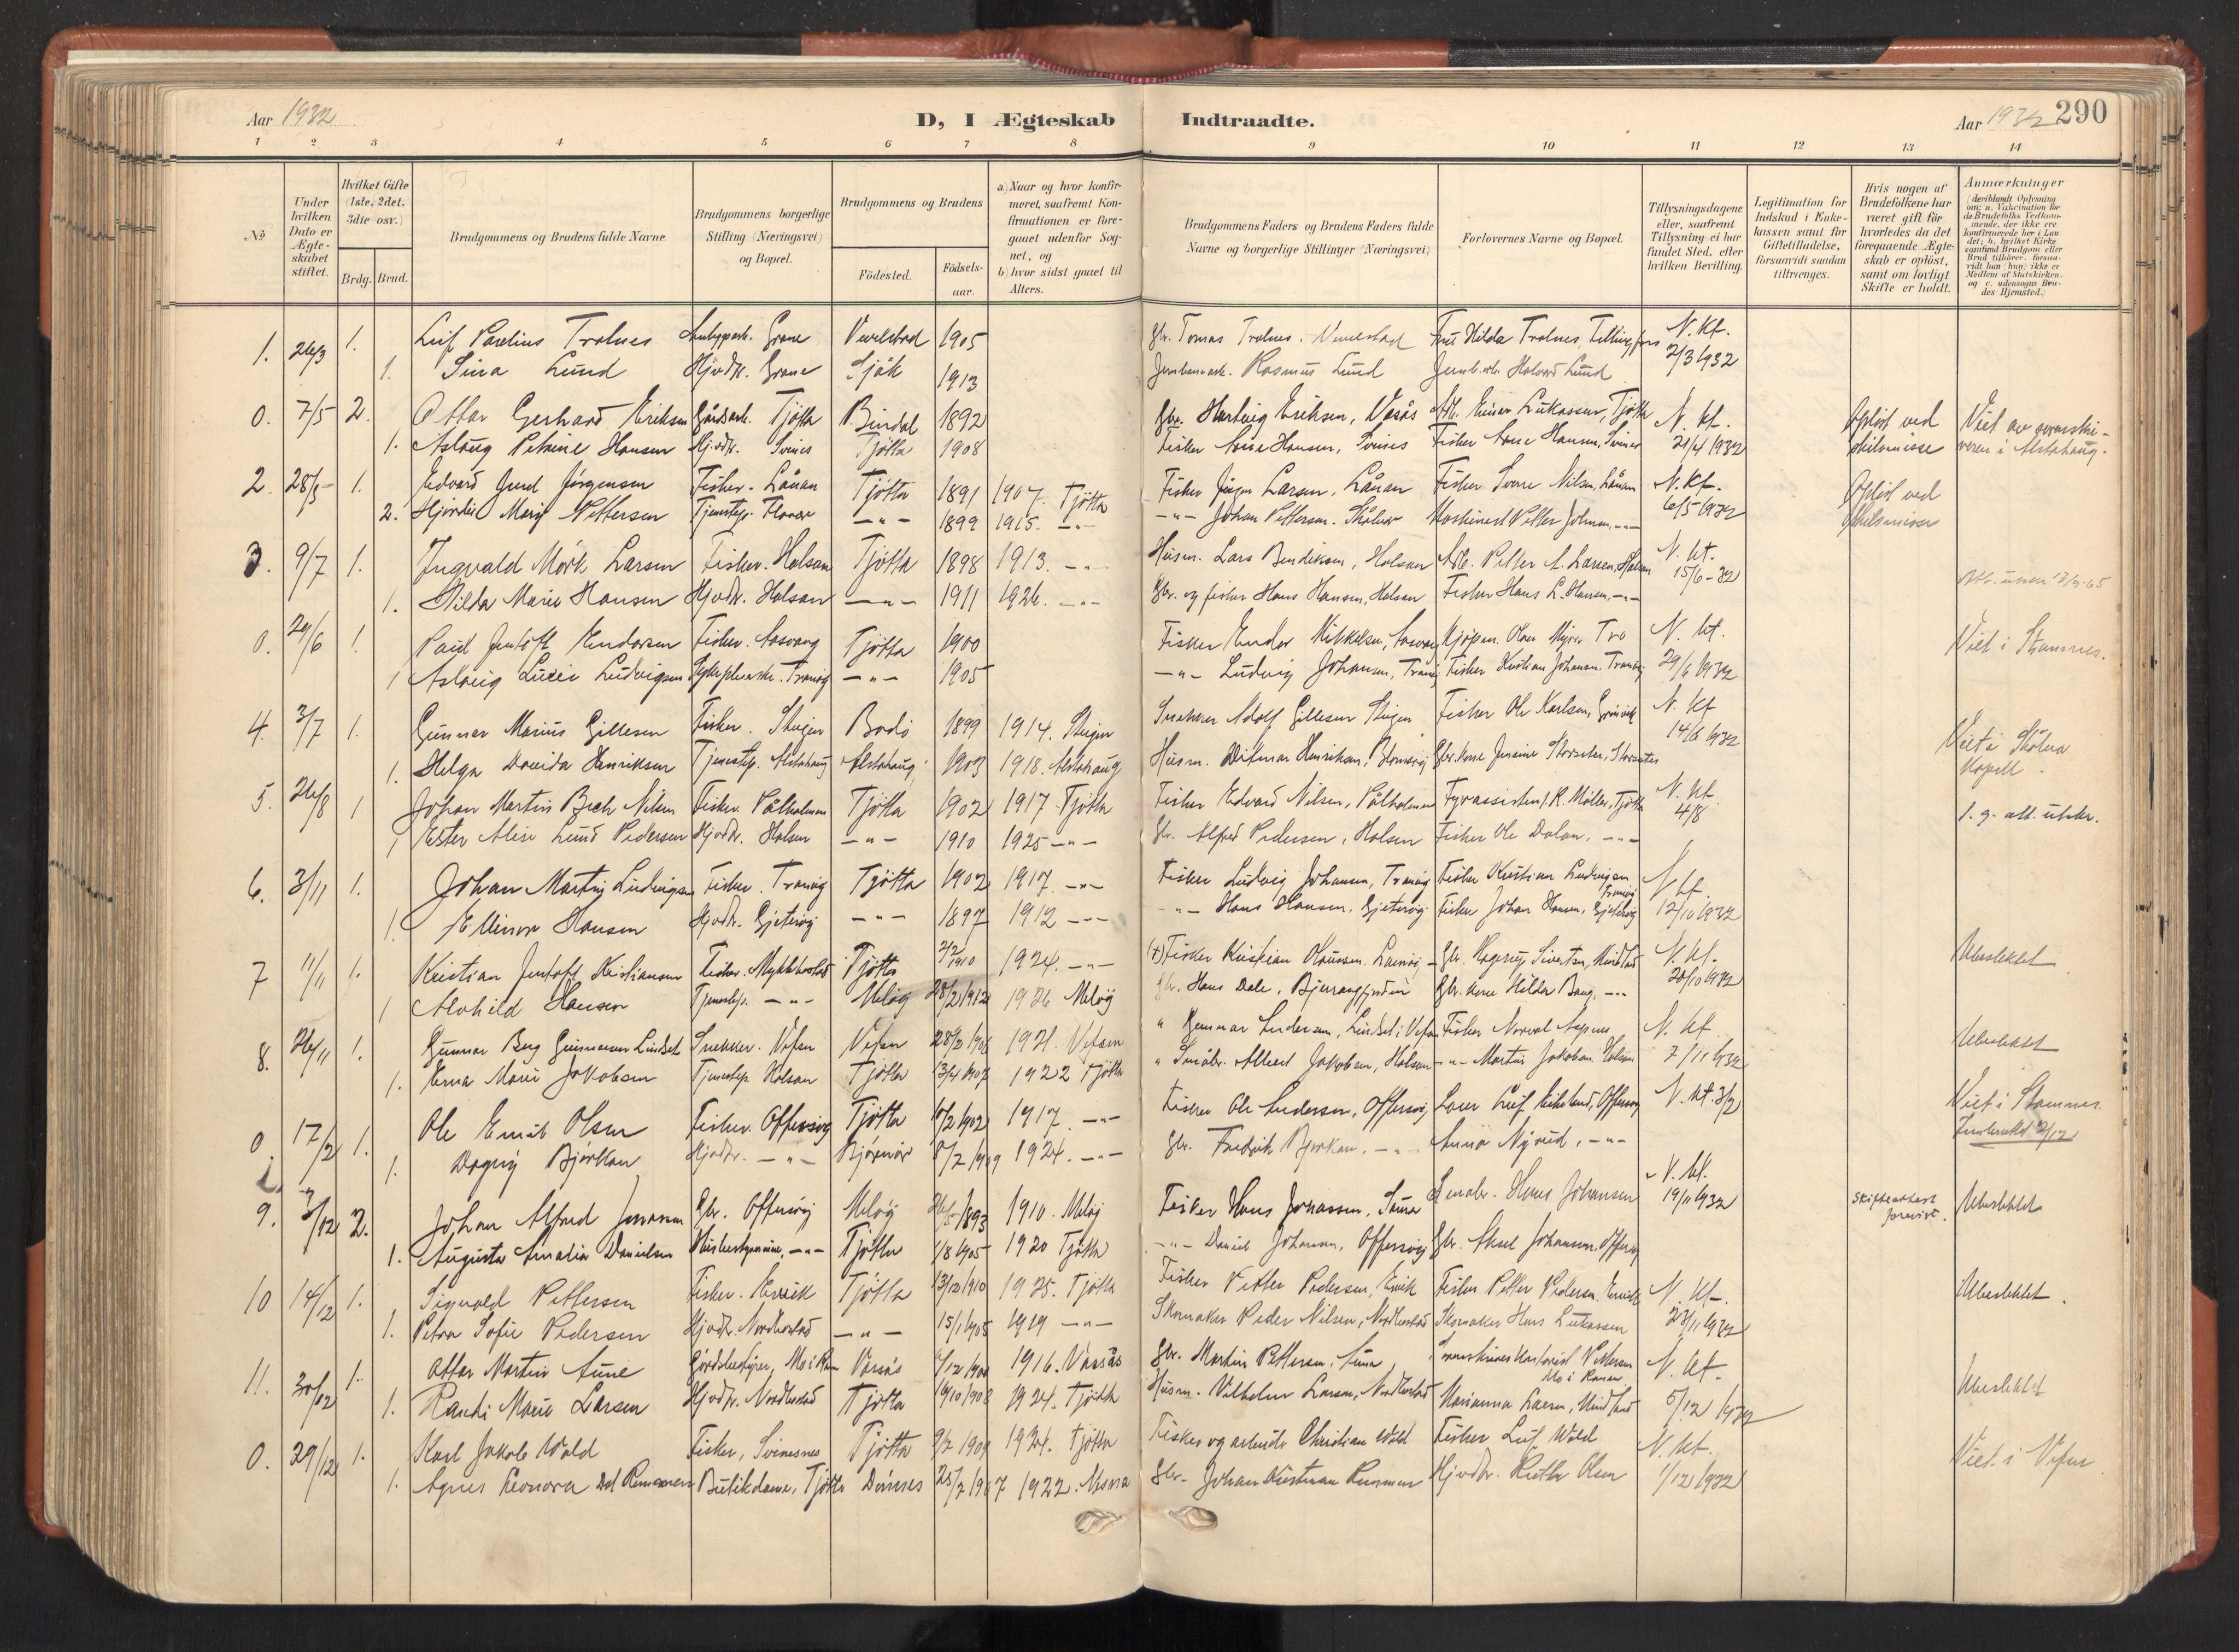 Aar 1932
D, I Ægteskab Indtraadte.
Aar 1932 290
1 2 3 4 5 6 7 8 9 10 11 12 13 14
No
Under hvilken Dato er Ægteskabet stiftet.
Hvilket Gifte (1ste, 2det, 3die osv.)
Brdg. Brud.
Brudgommens og Brudens fulde Navne
Brudgommens borgerlige Stilling (Næringsvei) og Bopæl.
Brudgommens og Brudens
Fødested.
Fødselsaar.
a) Naar og hvor konfirmeret, saafremt Konfirmationen er foregaaet udenfor Sognet, og
b) hvor sidst gaaet til Alters.
Brudgommens Faders og Brudens Faders fulde Navne og borgerlige Stillinger (Næringsvei)
Forlovernes Navne og Bopæl.
Tillysningsdagene eller, saafremt Tillysning ei har fundet Sted, efter hvilken Bevilling.
Legitimation for Indskud i Enkekassen samt for Giftetilladelse, forsaavidt saadan tiltrænges.
Hvis nogen af Brudefolkene har været gift før hvorledes da det foregaaende Ægteskab er opløst, samt om lovligt Skifte er holdt.
Anmærkninger (deriblandt Oplysning om: a. Vakcination for de Brudefolks Vedkommende, der ikke ere konfirmerede her i Landet; b. hvilket Kirkesamfund Brudgom eller Brud tilhører, forsaavidt han (hun) ikke er Medlem af Statskirken, og c. udensogns Brudes Hjemsted.)
1. 26/3 1. Leif Paulius Trolnes Grane Vevelstad 1905 Gbr. Tomas Trolnes, Vevelstad Frk. Hilda Trolnes, N. Kf.
1. Sina Lund Hjvdtr. Grane Sjåk 1913 Jernbanearb. Rasmus Lund Jernb.arb. Halvard Lund 2/3 1932
0. 7/5 2. Ottar Gerhard Eriksen Gårdsarb. Tjøtta Bindal 1892 Gbr. Hartvig Eriksen, Vasås Arb. Einar Lukassen, Tjøtta N. kf. Opløst ved Viet av sorenskri-
1. Aslaug Petrine Hansen Hjvdtr. Svines Tjøtta 1908 Fisker Arne Hansen, Svines Fisker Arne Hansen, Svines 21/4 1932 skilsmisse veren i Alstahaug.
2. 28/5 1. Edvard Jørgensen Fisker. Lånan Tjøtta 1891 1907. Tjøtta Fisker Jørgen Larsen, Lånan Fisker Sverre Nilsen, Lånan N. Kf. Opløst ved
2. Hjørdis Marie Pettersen Tjenestep. Flovær -"- 1899 1915. -"- -"- Johan Pettersen. Skålvær Maskinist Petter Johnsen, -"- 6/5 1932 skilsmisse
3. 9/7 1. Ingvald Mörk Larsen Fisker. Halsan Tjøtta 1898 1913. -"- Husm. Lars Bendiksen, Halsan Arb. Petter A. Larsen, Halsan N. kf.
1. Hilda Marie Hansen Hjvdtr. Halsan -"- 1911 1926. -"- Gbr. og fisker Hans Hansen, Halsan Fisker Hans L. Hansen, -"- 15/6-32
0. 29/6 1. Paul Jentoft Endersen Fisker. Aasvær Tjøtta 1900 Fisker Ender Mikkelsen, Kjøpm. Olav Myrer Tro N. kf. Viet i Stamnes.
1 Aslaug Lucie Ludvigsen Tranvåg -"- 1905 -"- Ludvig Johansen, Tranvåg Fisker Kristian Johansen. Tranvåg 29/6 1932
4. 3/7 1. Gunnar Marius Gillesen Fisker. Steigen Bodø 1899 1914. Steigen Snekker Adolf Gillesen Steigen Fisker Ole Karlsen, N. Kf Viet i Skålvær
1. Helga Davida Henriksen Tjenestep. Alstahaug Alstahaug 1903 1918. Alstahaug Husm. Ditmar Henriksen, Gbr.kone Jensine Storseter, Storseter 14/6 1932 kapell.
5. 26/8 1 Johan Martin Bech Nilsen Fisker. Pålholmen Tjøtta 1902 1917 Tjøtta Fisker Edvard Nilsen, Pålholmen Fyrassistent K. Møller, Tjøtta N. kf. 4/8 1. g. att. utskr.
1 Ester Alise Lund Pedersen Hjvdtr. Halsan -"- 1910 1925 -"- Gbr. Alfred Pedersen, Halsan Fisker Ole Dalan, -"-
6. 3/11 1. Johan Martin Ludvigsen Fisker. Tranvåg Tjøtta 1902 1917. -"- Fisker Ludvig Johansen, Tranvåg Fisker Kristian Ludvigsen Tranvåg N. kf.
1. Ellinor Hansen Hjvdtr. Gjetøy -"- 1897 1912 -"- -"- Hans Hansen, Gjetøy Fisker Johan Hansen, Gjetøy 12/10 1932
7 11/11 1. Kristian Jentoft Kristiansen Fisker. Myklebostad Tjøtta 2/2 1910 1924. -"- (+) Fisker Kristian Gbr. Sivertsen, Mindland N. kf. Ubeslektet
1 Alvhild Hansen Tjenestep. -"- Meløy 28/2 1912 1926 Meløy Gbr. Hans Dale, Bjærangfjorden Gbr. kone Hilda Bang, -"- 20/10 1932
8. 26/11 1. Gunnar Berg Gunnarsen Lindset Snekker. Vefsn Vefsn 28/2 1906 1921. Vefsn " Gunnar Andersen, Lindset i Vefsn Fisker Norval N. kf. Ubeslektet
1. Erna Marie Jakobsen Tjenestep. Halsan Tjøtta 13/4 1907 1922 Tjøtta " Småbr. Albert Jakobsen, Halsan -"- Martin Jakobsen Halsan 7/11 1932
0. 17/2 1. Ole Emil Olsen Fisker. Offersøy Tjøtta 10/2 1902 1917. -"- Fisker Ole Andersen, Offersøy Lærer Leif Offersøy N. kf. 3/2 Viet i Stamnes.
1. Dagny Bjørkan Hjvdtr. -"- Bjørnør 8/7 1909 1924. -"- Gbr. Fredrik Bjørkan. -"- Anna Nyrud, -"-
9. 3/12 2. Johan Alfred Jonassen Gbr. Offersøy Meløy 26/5 1893 1910. Meløy Fisker Hans Jonassen, Småbr. Hans Johansen N. kf. 19/11 1932 Skifteattest forevist. Ubeslektet
1. Augusta Amalia Danielsen Husbestyrerinne, -"- Tjøtta 1/8 1905 1920 Tjøtta -"- Daniel Johansen, Offersøy Gbr. Aksel Johansen, Offersøy
10 14/12 1. Sigvald Pettersen Fisker. Ervik Tjøtta 13/12 1910 1925. Tjøtta Fisker Petter Pedersen, Ervik Fisker Petter Pedersen. Ervik N. kf. Ubeslektet.
1. Petra Sofie Pedersen Hjvdtr. Nordbostad -"- 15/1 1905 1919 -"- Skomaker Peder Nilsen, Nordbostad Skomaker Hans Lukassen 23/11 1932
11. 30/12 1. Ottar Martin Aune Gårdsbestyrer, Mo i Rana Vassås 1916. Vassås Gbr. Martin Pettersen, Aune Sorenskriver Kontorist Pettersen Mo i Rana N. kf. Ubeslektet
1. Randi Marie Larsen Hjvdtr. Nordbostad Tjøtta 19/10 1908 1924. Tjøtta Husm. Vilhelm Larsen, Nordbostad Marianna Larsen, Mindland 5/12 1932
0. 29/12 1. Karl Jakob Wold Fisker, Svinesnes Tjøtta 9/7 1909 1924. Tjøtta Fisker og arbeider Christian Wold Fisker Leif Wold N. kf. Viet i Vefsn
1. Agnes Leonora Butikdame, Tjøtta Dønnes 25/7 1907 1922. Gbr. Johan Kristian Hjvdtr. Ruth Olsen 1/12 1932